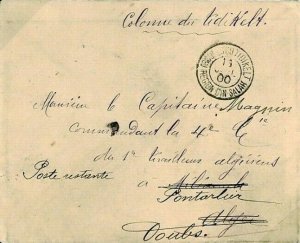 Colonne du Tidikelt.
11
00
REGION D'IN SALAH
Monsieur le Capitaine Magnin
commandant la 4e Cie
du 1er tirailleurs algériens
Poste restante
a
Pontarlier
Alger
Doubs.